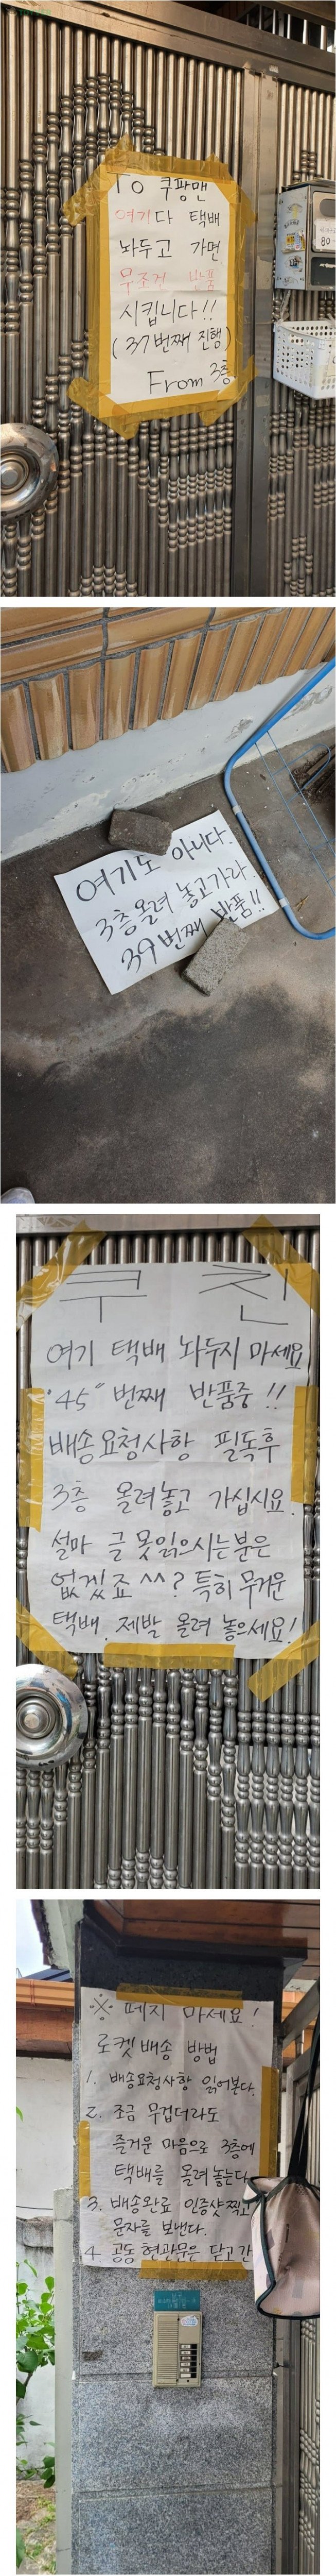 To 쿠팡맨
여기다 택배
놔두고 가면
무조건 반품
시킵니다!!
(37번째 진행)
From 3층
80-
여기도 아니다.
3층올려 놓고가라.
39번째 반품!!
쿠 친
여기 택배 놔두지 마세요
"45" 번째 반품중!!
배송요청사항 필독후
3층 올려놓고 가십시요.
설마 글 못읽으시는분은
없겠죠 ^^? 특히 무거운
택배. 제발 올려 놓으세요!
※ 떼지 마세요!
로켓배송 방법
1. 배송요청사항 읽어본다.
2. 조금 무겁더라도
즐거운 마음으로 3층에
택배를 올려놓는다
3. 배송완료 인증샷찍고
문자를 보낸다.
4. 공동현관문은 닫고간